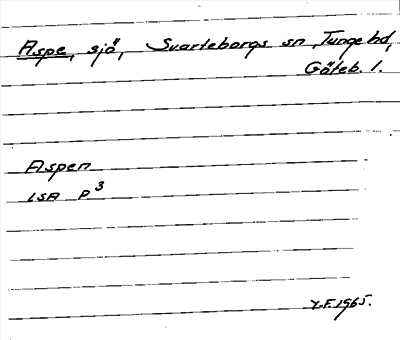 Aspe, sjö, Svarteborgs sn, Tunge hd,
Göteb. l.
Aspen
LSA P³
Y.F. 1965.